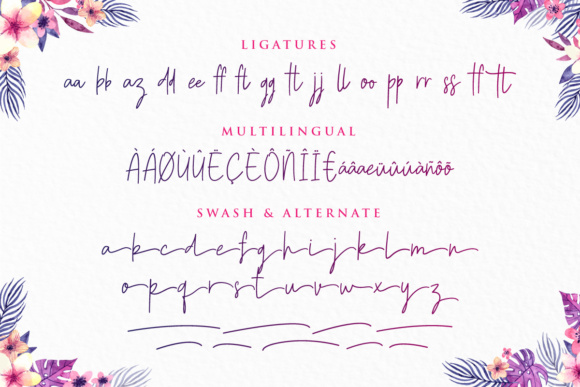 LIGATURES
aa bb az dd ee ff ft gg tt jj ll oo pp rr ss tf tt
MULTILINGUAL
ÀÁØÙÛËÇÈÔÑÎÏ€áâaeüûúàñôõ
SWASH & ALTERNATE
a b c d e f g h i j k l m n
o p q r s t u v w x y z